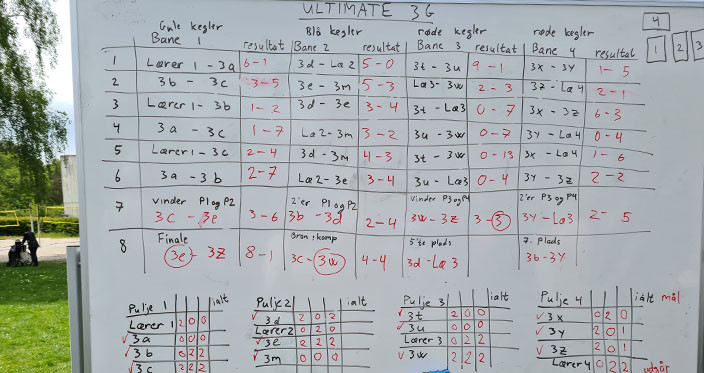 ULTIMATE 3G
4
1 2 3
Gule kegler Blå kegler røde kegler røde kegler
Bane 1 resultat Bane 2 resultat Bane 3 resultat Bane 4 resultat
1 Lærer1 - 3a 6-1 3d - La2 5-0 3t - 3u 9-1 3x - 3y 1-5
2 3b - 3c 3-5 3e - 3m 5-3 La3- 3w 2-3 3z - La4 2-1
3 Lærer1 - 3b 1-2 3d - 3e 3-4 3t - Læ3 0-7 3x - 3z 6-3
4 3a - 3c 1-7 La2-3m 3-2 3u - 3w 0-7 3y - La4 0-4
5 Lærer1 - 3c 2-4 3d - 3m 4-3 3t - 3w 0-13 3x - La4 1-6
6 3a - 3b 2-7 Læ2-3e 3-4 3u - Læ3 0-4 3y - 3z 2-2
7 vinder P1ogP2 2'er P1ogP2 vinder P3ogP4 2'er P3ogP4
3c - 3e 3-6 3b - 3d 2-4 3w-3z 3-5 3y-La3 2-5
8 Finale Bronzkamp 5'te plads 7. Plads
3e - 3z 8-1 3c-3w 4-4 3d-La3 3b-3y
Pulje 1 ialt Pulje 2 ialt Pulje 3 ialt Pulje 4 ialt mål
Lærer 1 2 0 0 3d 2 0 2 3t 2 0 0 3x 0 2 0
3a 0 0 0 Lærer2 0 2 0 3u 0 0 0 3y 2 0 1
3b 0 2 2 3e 2 2 2 Lærer3 0 2 2 3z 2 0 1
3c 2 2 2 3m 0 0 0 3w 2 2 2 Lærer4 0 2 2 udgår